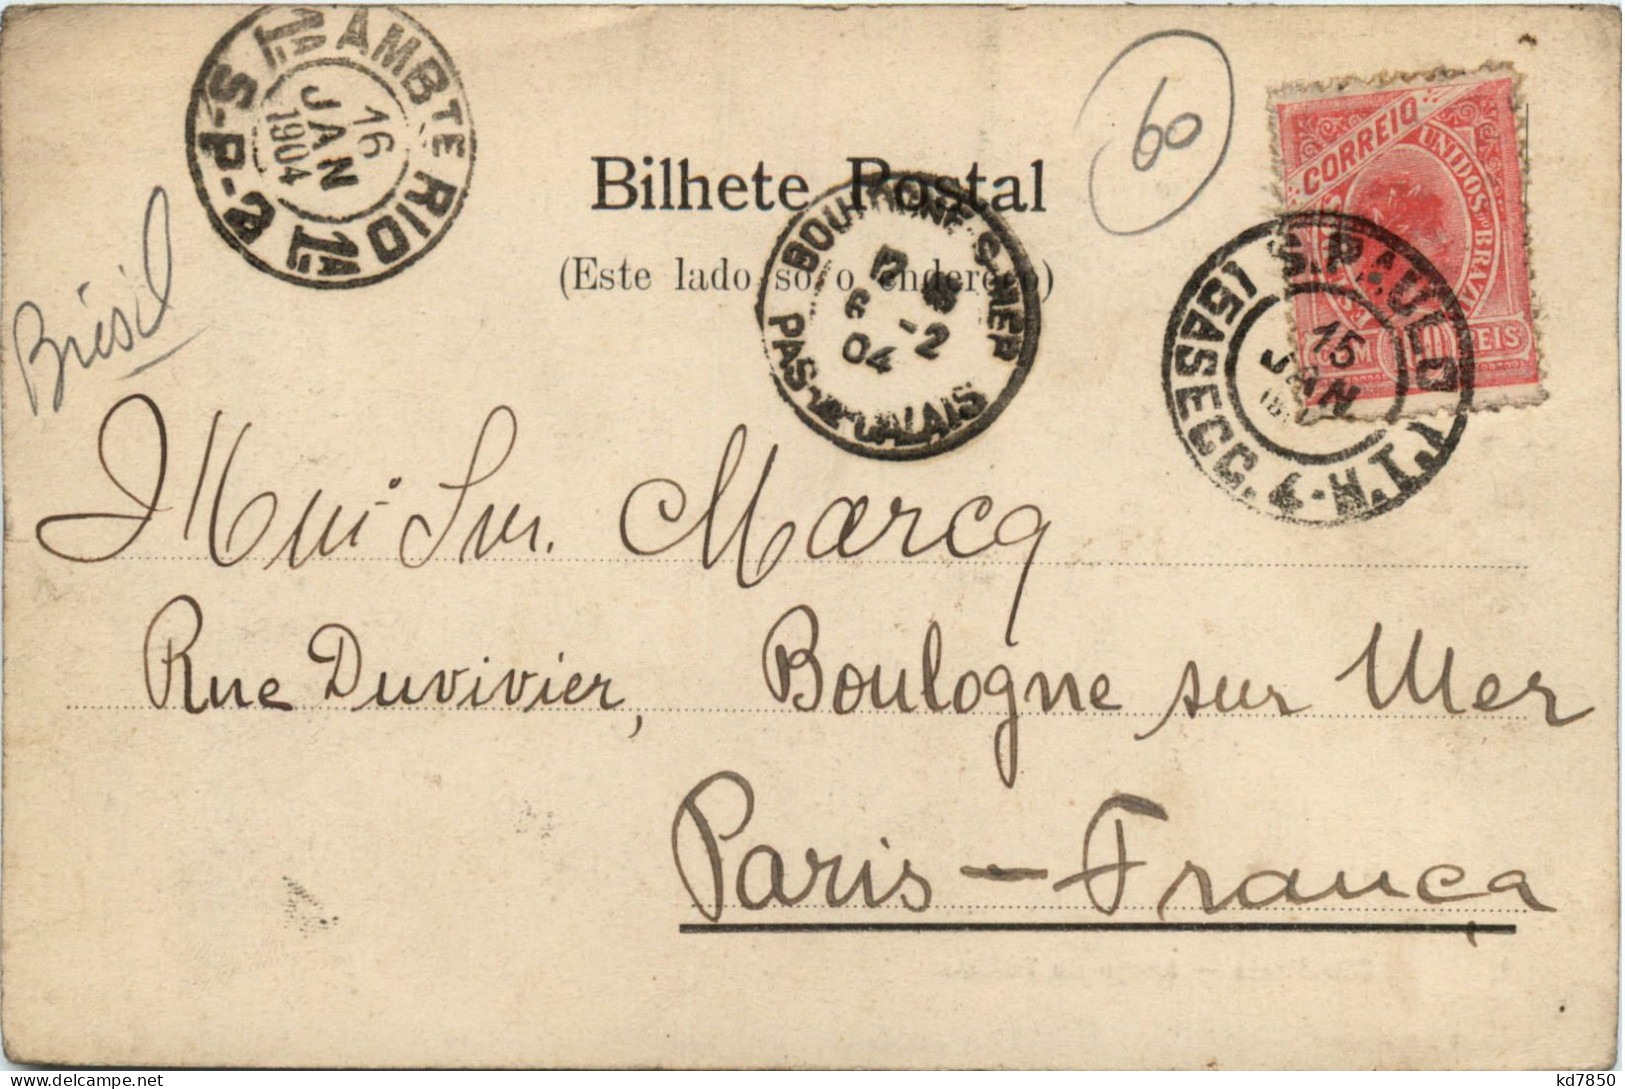 AMBTE RIO 1A S-P-2 1A
16
JAN
1904
60
CORREIO
E.S. UNIDOS DO BRAZIL
CEM 100 REIS
Bilhete Postal
(Este lado so o endereço)
BOULOGNE-S-MER
6 -2
04
PAS-DE-CALAIS
S. PAULO
15
JAN
(5ASECC. 4-H.T.)
Brésil
Mui Snr. Marcq
Rue Duvivier, Boulogne sur Mer
Paris — França
kd7850